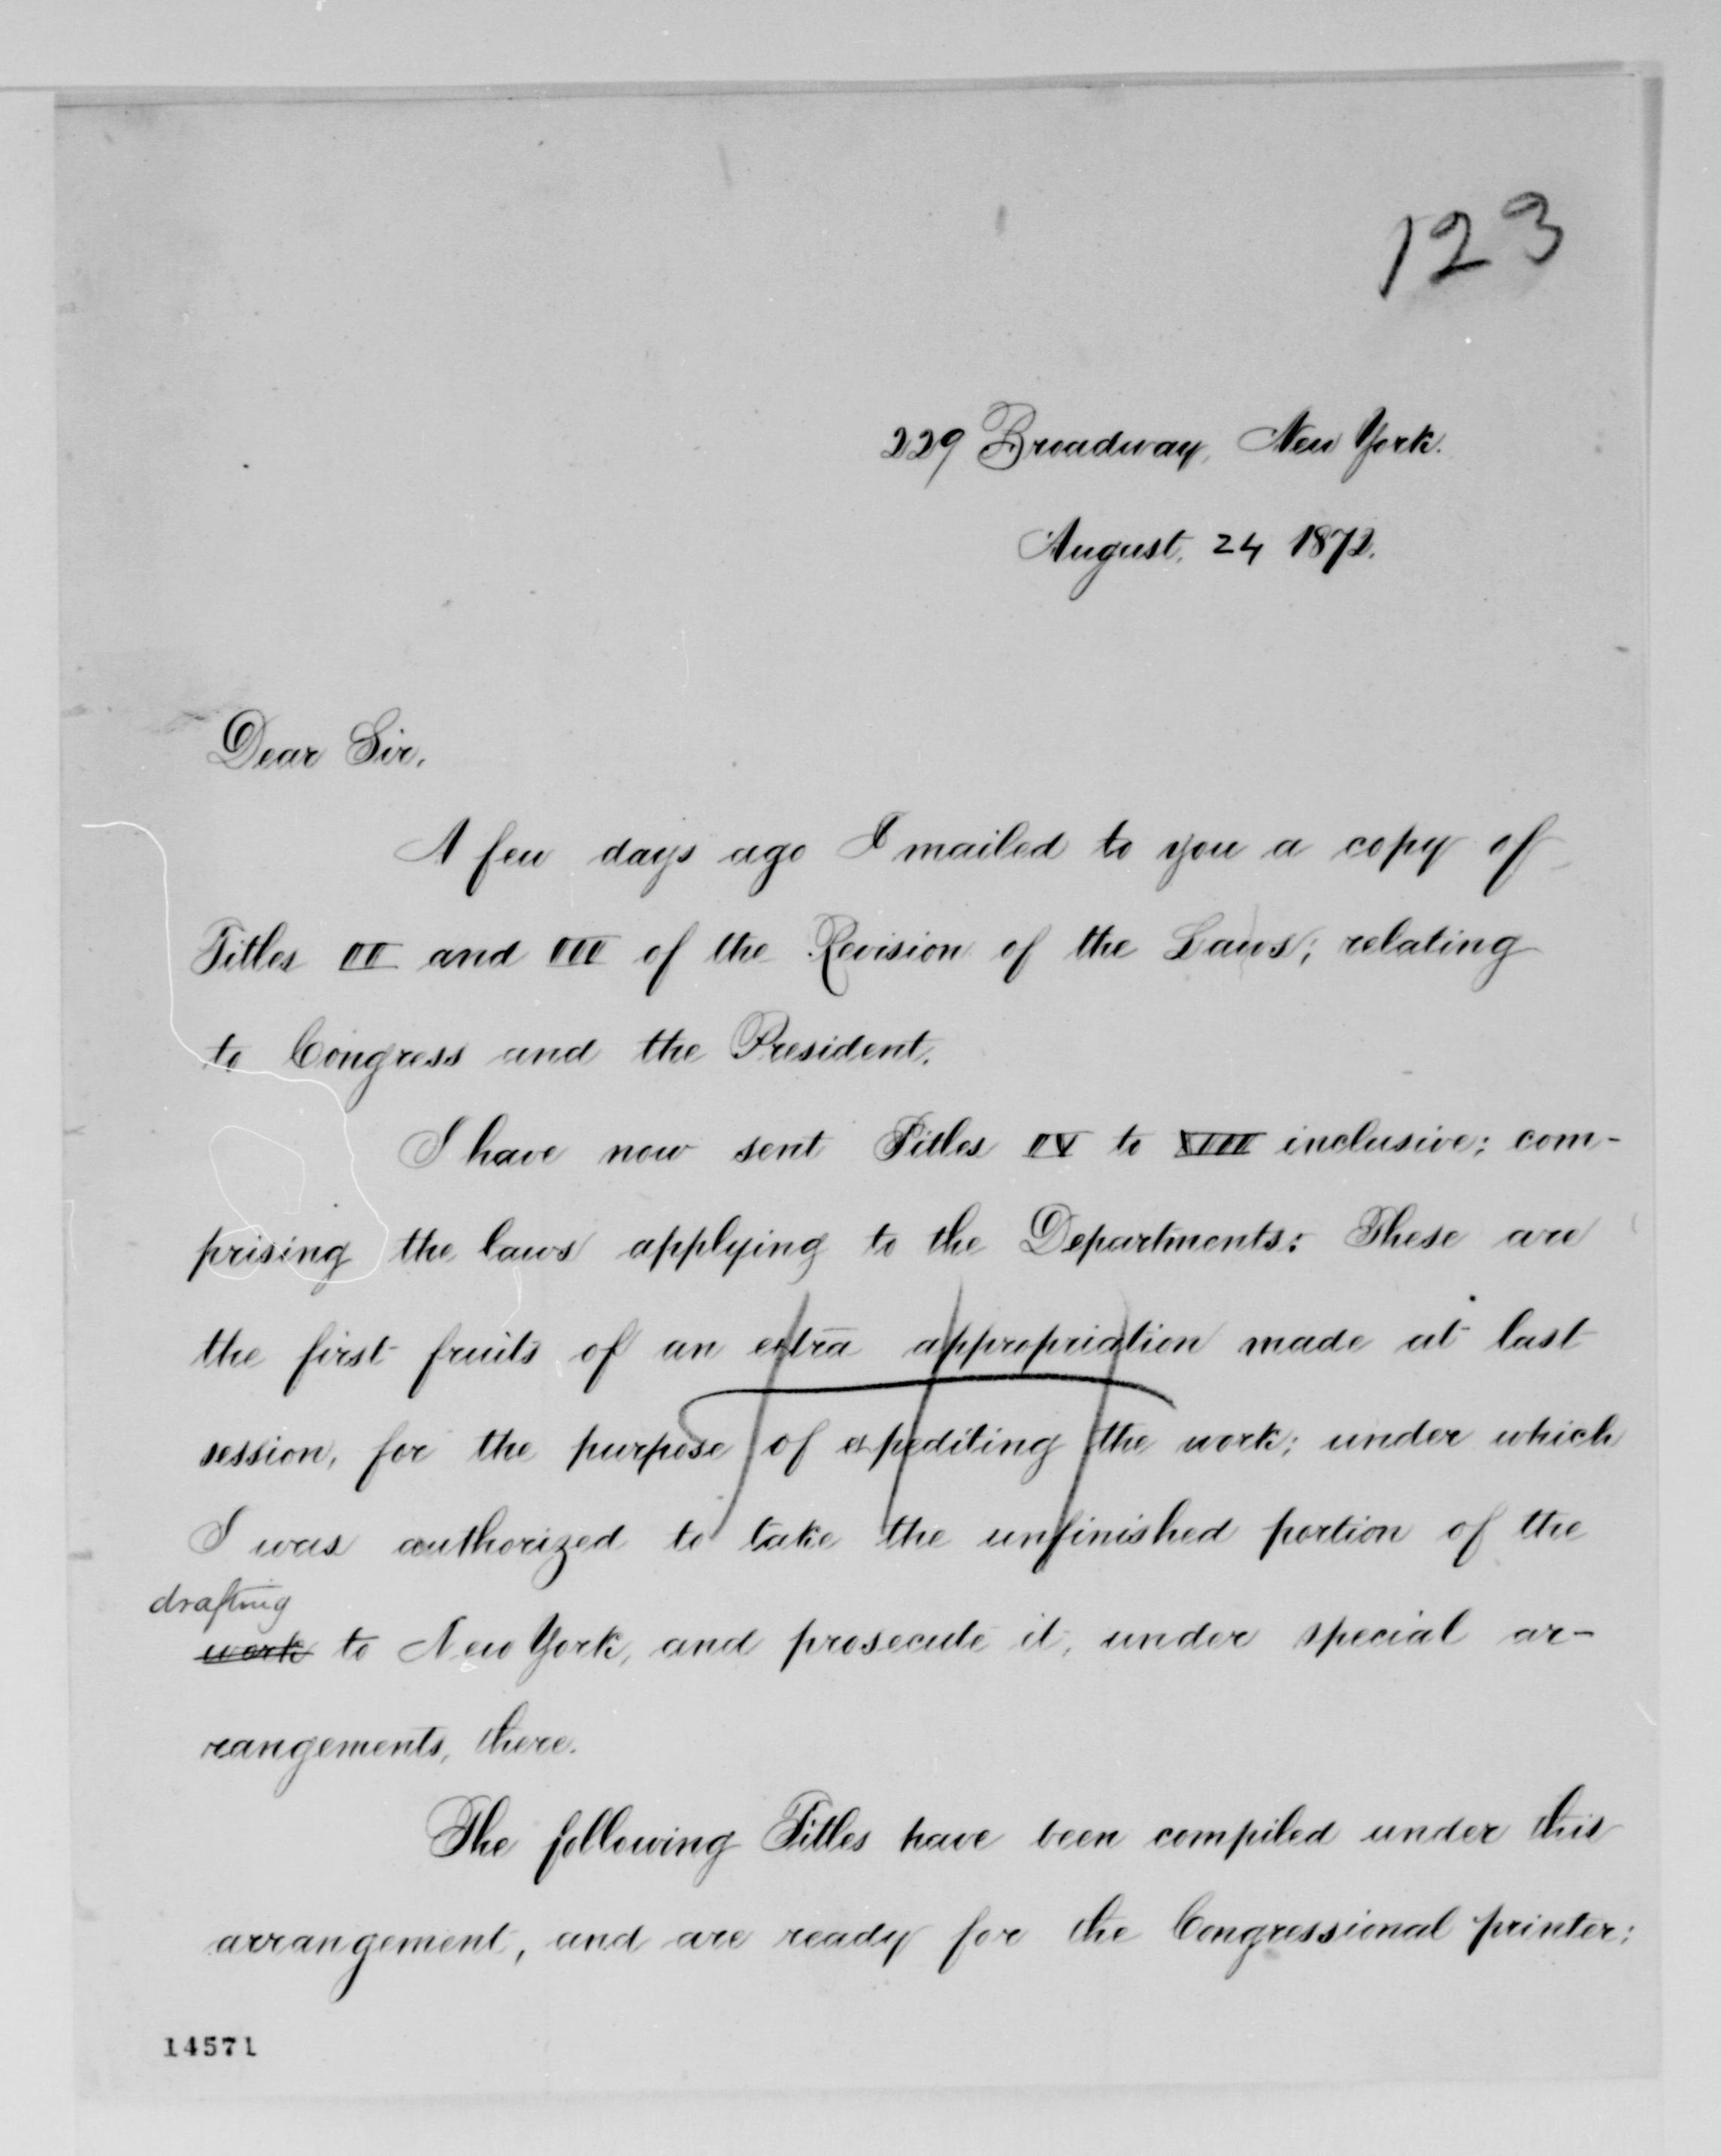 123
229 Broadway, New York.
August. 24 1872.
Dear Sir.
A few days ago I mailed to you a copy of
Titles II and III of the Revision of the Laws; relating
to Congress and the President.
I have now sent Titles IV to XIII inclusive; com-
prising the laws applying to the Departments: These are
the first fruits of an extra appropriation made at last
session, for the purpose of expediting the work; under which
I was authorized to take the unfinished portion of the
drafting
work to New York, and prosecute it, under special ar-
rangements, there.
The following Titles have been compiled under this
arrangement, and are ready for the Congressional printer:
14571